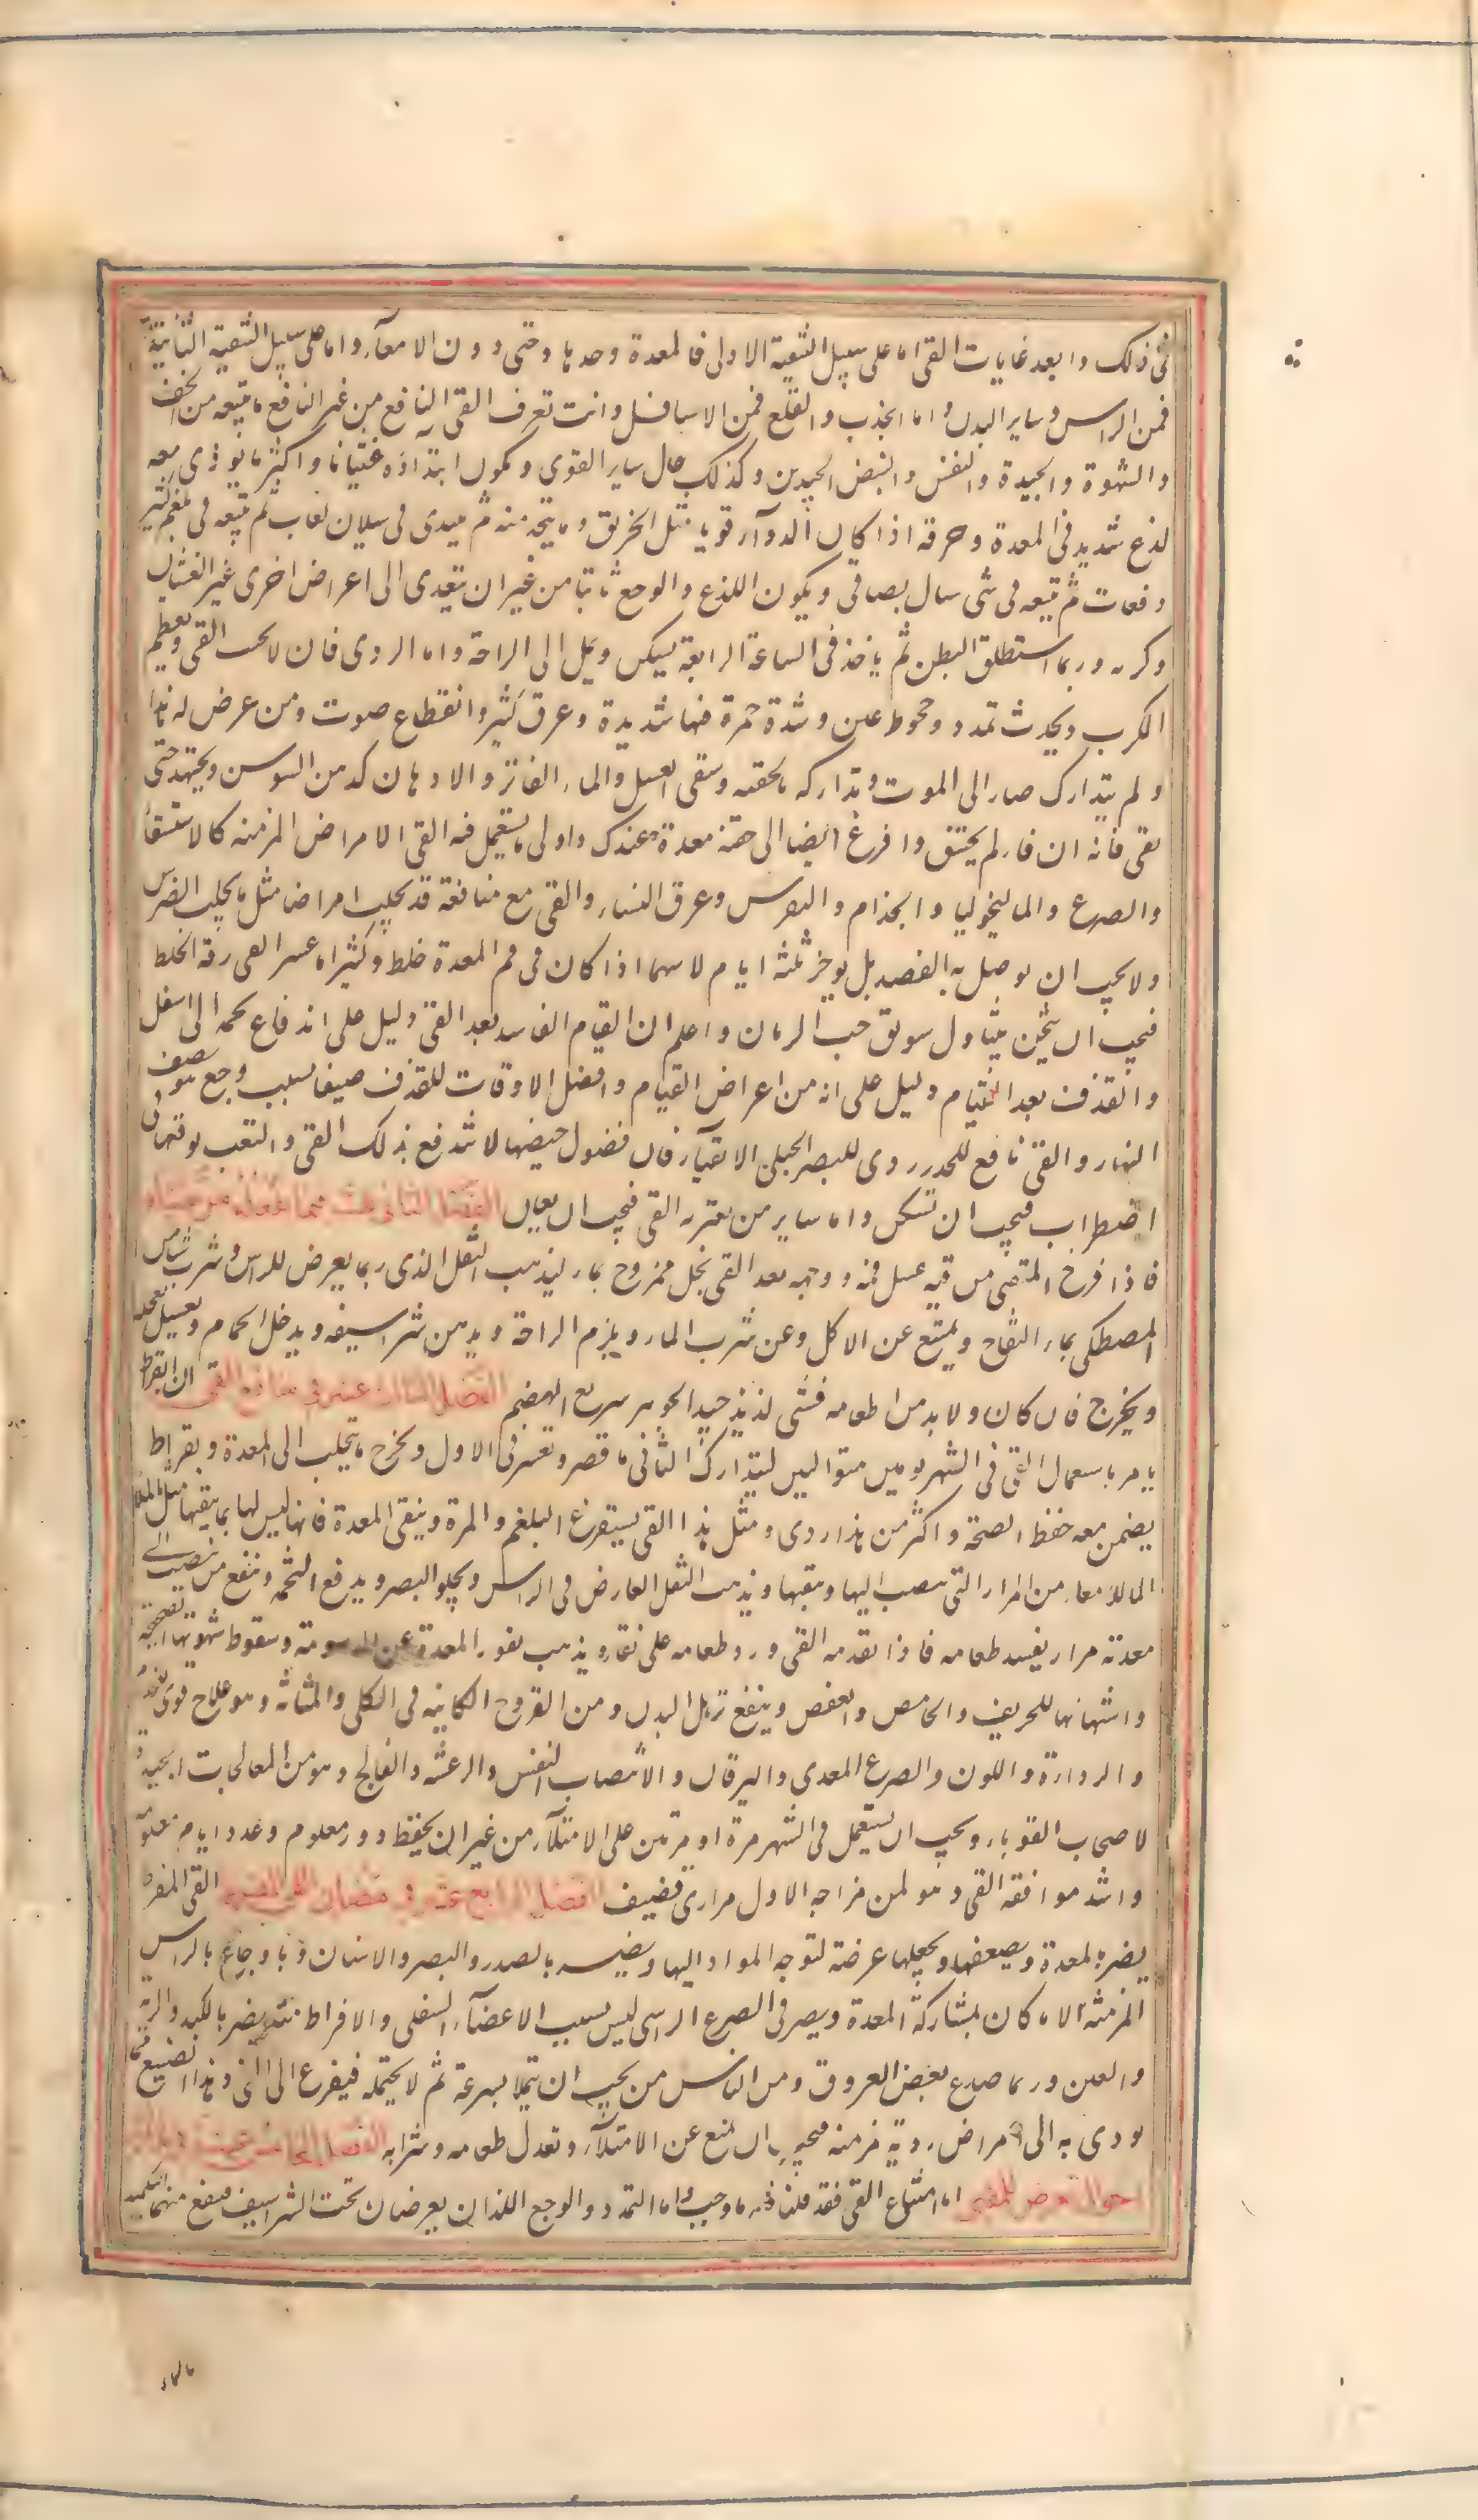 فى ذلك وابعد غايات القى اما على سبيل التنقية الاولى فالمعدة وحدها وحتى دون الامعآء واما على سبيل التنقية الثانية
فمن الراس وساير البدن واما الجذب والقلع فمن الاسافل وانت تعرف القى النافع من غير النافع ما يتبعه من الخف
والشهوة والجيدة والنفس والنبض الجيدين وكذلك حال ساير القوى ويكون ابتداؤه غثيانا واكثر ما يوذى معه
لذع شديد فى المعدة وحرقة اذا كان الدوآء قويا مثل الخربق وما يتخذ منه ثم يبتدى فى سيلان لعاب ثم يتبعه قى بلغم كثير
دفعات ثم يتبعه قى شى سال بصاقى ويكون اللذع والوجع ثابتا من غير ان يتعدى الى اعراض اخرى غير الغثيان
وكربه وربما استطلق البطن ثم ياخذ فى الساعة الرابعة يسكن ويميل الى الراحة واما الردى فان لا يجب القى ويعظم
الكرب ويحدث تمدد وجحوظ عين وشدة حمرة فيها شديدة وعرق كثير وانقطاع صوت ومن عرض له هذا
ولم يتدارك صار الى الموت وتداركه بالحقنة وسقى العسل والماء الفاتر والادهان كدهن السوسن ويجتهد حتى
يقى فانه ان قاء لم يختنق وافرغ ايضا الى حقنة معدة عندك واولى ما يستعمل فيه القى الامراض المزمنه كالاستسقاء
والصرع والماليخوليا والجذام والنقرس وعرق النساء والقى مع منافعه قد يجلب امراضا مثل ما يجلب الضرس
ولا يجب ان يوصل به الفصد بل يوخر ثلثه ايام لا سيما اذا كان فى فم المعدة خلط وكثيرا ما عسر القى رقة الخلط
فيجب ان يثخن بتناول سويق حب الرمان واعلم ان القيام الفاسد بعد القى دليل على اندفاع تخمة الى اسفل
والقذف بعد القيام دليل على انه من اعراض القيام وافضل الاوقات للقذف صيفا بسبب وجع هو نصف
النهار والقى نافع للجسد ردى للبصر الحبلى لا تقيآ فان فضول حيضها لا تندفع بذلك القى والتعب يوقعها فى
اضطراب فيجب ان تسكن واما ساير من يعتريه القى فيجب ان يعان الفصل الثانى عشر فيما يفعله من تقياه
فاذا فرغ المتقى من قيه غسل فمه ووجهه بعد القى بخل ممزوج بماء ليذهب الثقل الذى ربما يعرض للراس وشرب شيا من
المصطكى بماء التفاح ويمتنع عن الاكل وعن شرب الماء ويلزم الراحة ويدهن شراسيفه ويدخل الحمام ويغسل بعجلة
ويخرج فان كان ولا بد من اطعامه فشى لذيذ جيد الجوهر سريع الهضم الفصل الثالث عشر فى منافع القى ان ابقراط
يامر باستعمال القى فى الشهر يومين متواليين ليتدارك الثانى ما قصر وتعسر فى الاول ويخرج ما يتحلب الى المعدة وبقراط
يضمن معه حفظ الصحة واكثر من هذا ردى ومثل هذا القى يستفرغ البلغم والمرة وينقى المعدة فانها ليس لها ما ينقيها مثل ما
للامعاء من المرار التى تنصب اليها وينقيها ويذهب الثقل العارض فى الراس ويجلو البصر ويدفع التخمة وينفع من ينصب الى
معدته مرار يفسد طعامه فاذا تقدمه القى ورد طعامه على نقاء ويذهب نفور المعدة عن الدسومة وسقوط شهوتها الصحيحة
واشتهائها للحريف والحامض والعفص وينفع ترهل البدن ومن القروح الكاينة فى الكلى والمثانة وهو علاج قوى للجذام
والرداءة اللون والصرع المعدى واليرقان والانتصاب النفس والرعشه والفالج وهو من المعالجات الجيدة
لاصحاب القوباء ويجب ان يستعمل فى الشهر مرة او مرتين على الامتلآء من غير ان يحفظ دور معلوم وعدد ايام معلومة
واشد موافقة القى وهو لمن مزاجه الاول مرارى قضيف الفصل الرابع عشر فى مضار القى المفرط القى المفرط
يضر بالمعدة ويضعفها ويجعلها عرضة لتوجه المواد اليها ويضر بالصدر والبصر والاسنان وباوجاع بالراس
المزمنة الا ما كان بمشاركة المعدة ويضر فى الصرع الراسى ليس بسبب الاعضآء السفلى والافراط منه يضر بالكبد والرية
والعين وربما صدع بعض العروق ومن الناس من يحب ان يتملا بسرعة ثم لا يحتمله فيفزع الى القى وهذا الصنيع مما
يودى به الى امراض ردية مزمنة فيجب ان يمتنع عن الامتلآء ويعدل طعامه وشرابه الفصل الخامس عشر
احوال تعرض للمتقى اما امتناع القى فقد قلنا فيه ما وجب واما التمدد والوجع اللذان يعرضان تحت الشراسيف فينفع منهما التكميد
بالماء